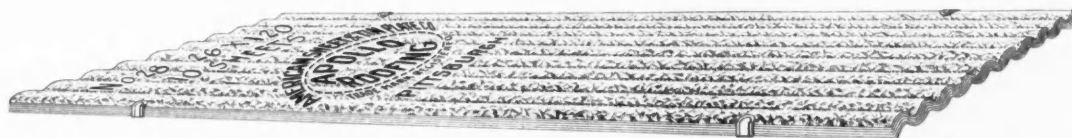 No. 28
10 26 X 120
SHEETS
AMERICAN SHEET & TIN PLATE CO.
APOLLO
ROOFING
PITTSBURGH